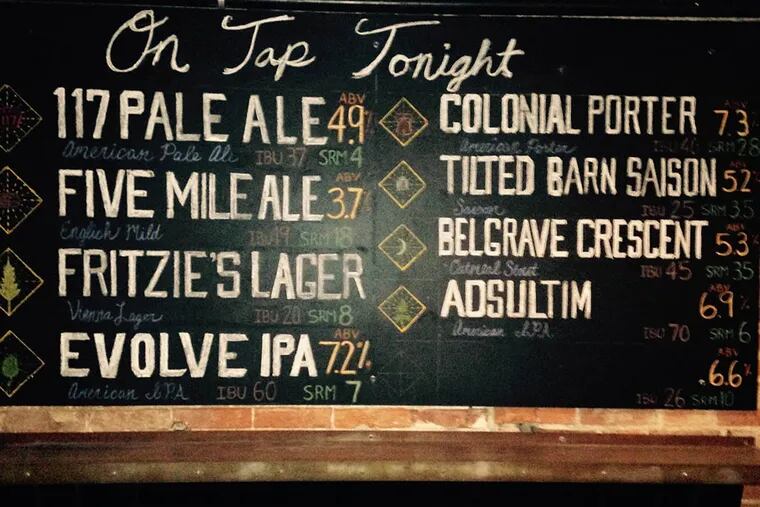 On Tap Tonight
117 PALE ALE ABV 4.9%
American Pale Ale IBU 37 SRM 4
FIVE MILE ALE ABV 3.7%
English Mild IBU 19 SRM 18
FRITZIE'S LAGER
Vienna Lager IBU 20 SRM 8
EVOLVE IPA ABV 7.2%
American IPA IBU 60 SRM 7
COLONIAL PORTER ABV 7.3
American Porter IBU 40 SRM 28
TILTED BARN SAISON ABV 5.2
Saison IBU 25 SRM 3.5
BELGRAVE CRESCENT ABV 5.3
Oatmeal Stout IBU 45 SRM 35
ADSULTIM ABV 6.9%
American IPA IBU 70 SRM 6
ABV 6.6%
IBU 26 SRM 10